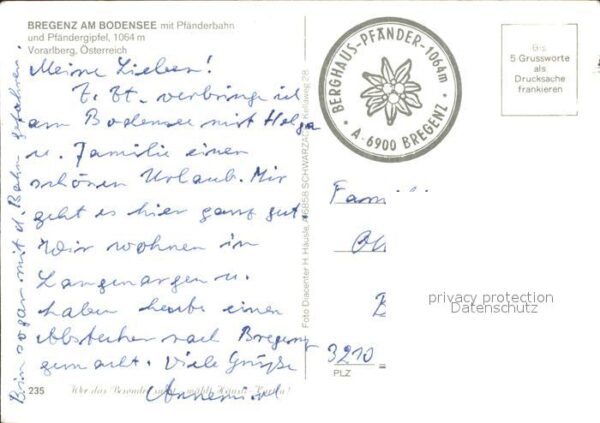 BREGENZ AM BODENSEE mit Pfänderbahn
und Pfändergipfel, 1064 m
Vorarlberg, Österreich
Meine Lieben!
Z. Zt. verbringe ich
am Bodensee mit Helga
u. Familie einen
schönen Urlaub. Mir
geht es hier ganz gut
Wir wohnen in
Langenargen u.
haben heute einen
Abstecher nach Bregenz
gemacht. Viele Grüße
Annemarie
Bin sogar mit d. Bahn gefahren.
235
Foto Diacenter H. Häusle, A-6858 SCHWARZACH, Kellaweg 28
BERGHAUS-PFÄNDER-1064m
· A-6900 BREGENZ ·
Bis
5 Grussworte
als
Drucksache
frankieren
Fami
B
privacy protection
Datenschutz
3210
PLZ